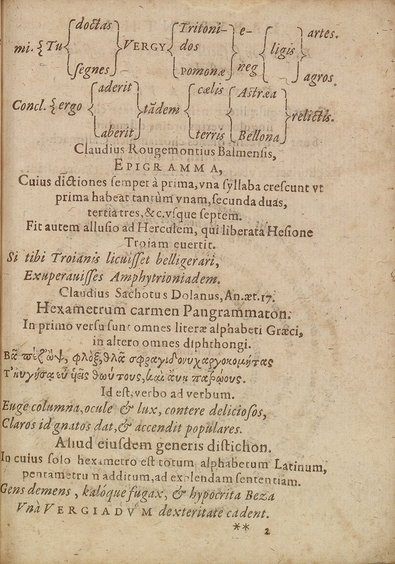 doctas Tritoni- e- artes.
mi. { Tu VERGY dos ligis
segnes pomonæ neg agros
aderit cælis Astræa
Concl. { ergo tãdem relictis.
aberit terris Bellona
Claudius Rougemontius Balmensis,
EPIGRAMMA,
Cuius dictiones semper à prima, vna syllaba crescunt vt
prima habeat tantùm vnam, secunda duas,
tertia tres, &c. vsque septem.
Fit autem allusio ad Herculem, qui liberata Hesione
Troiam euertit.
Si tibi Troianis licuisset belligerari,
Exuperauisses Amphytrioniadem.
Claudius Sachotus Dolanus, An. æt. 17.
Hexametrum carmen Pangrammaton.
In primo versu sunt omnes literæ alphabeti Græci,
in altero omnes diphthongi.
φλὸξ, θλᾶ
Id est, verbo ad verbum.
Euge columna, ocule & lux, contere deliciosos,
Claros id gnatos dat, & accendit populares.
Aliud eiusdem generis distichon.
In cuius solo hexametro est totum alphabetum Latinum,
pentametrum additum, ad explendam sententiam.
Gens demens, kalóque fugax, & hypocrita Beza
Vnà VERGIADVM dexteritate cadent.
** 2